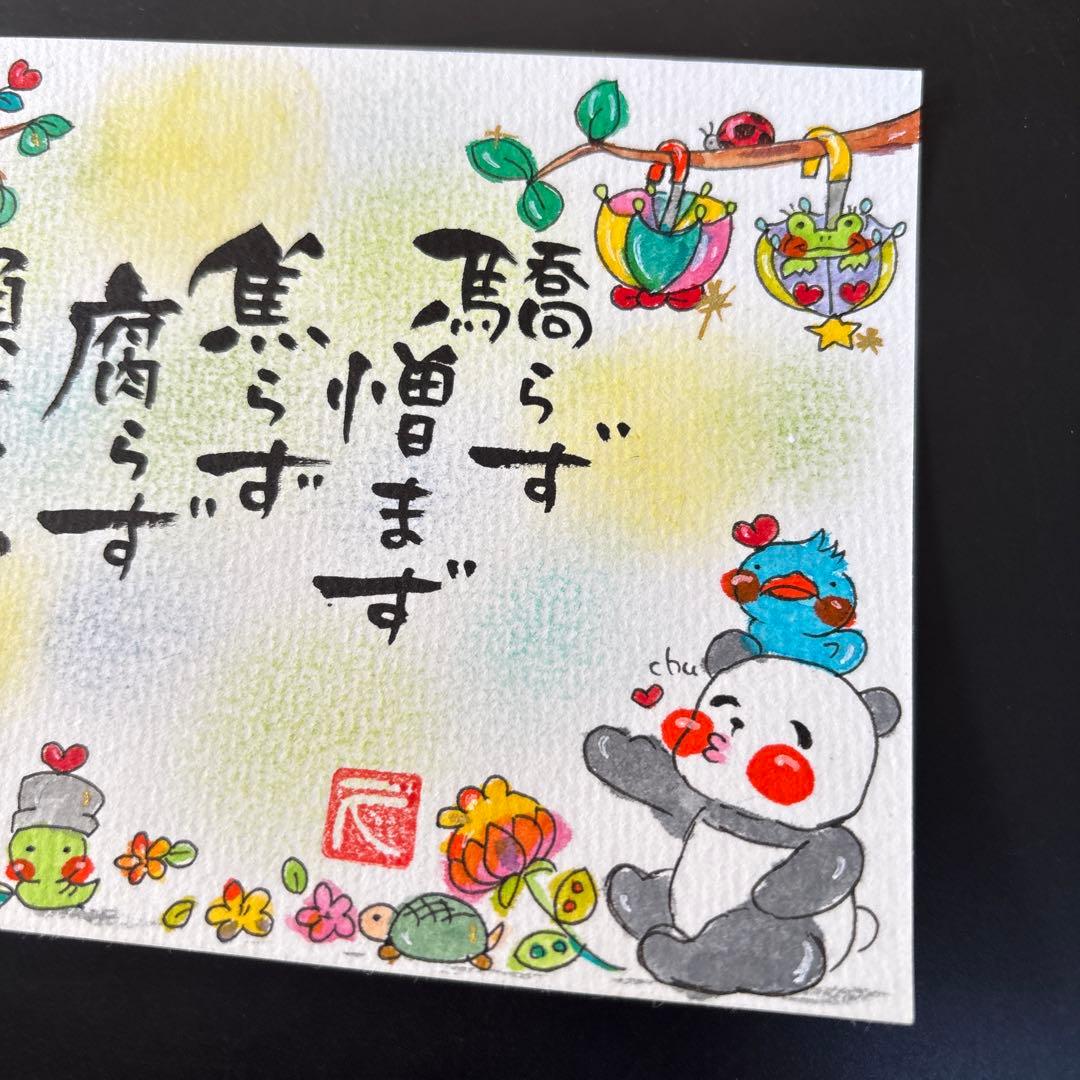 驕らず
憎まず
焦らず
腐らず
chu